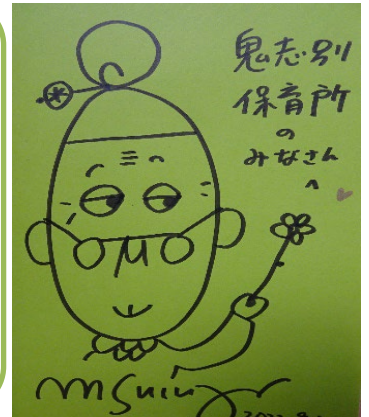 鬼志別
保育所
の
みなさん
へ